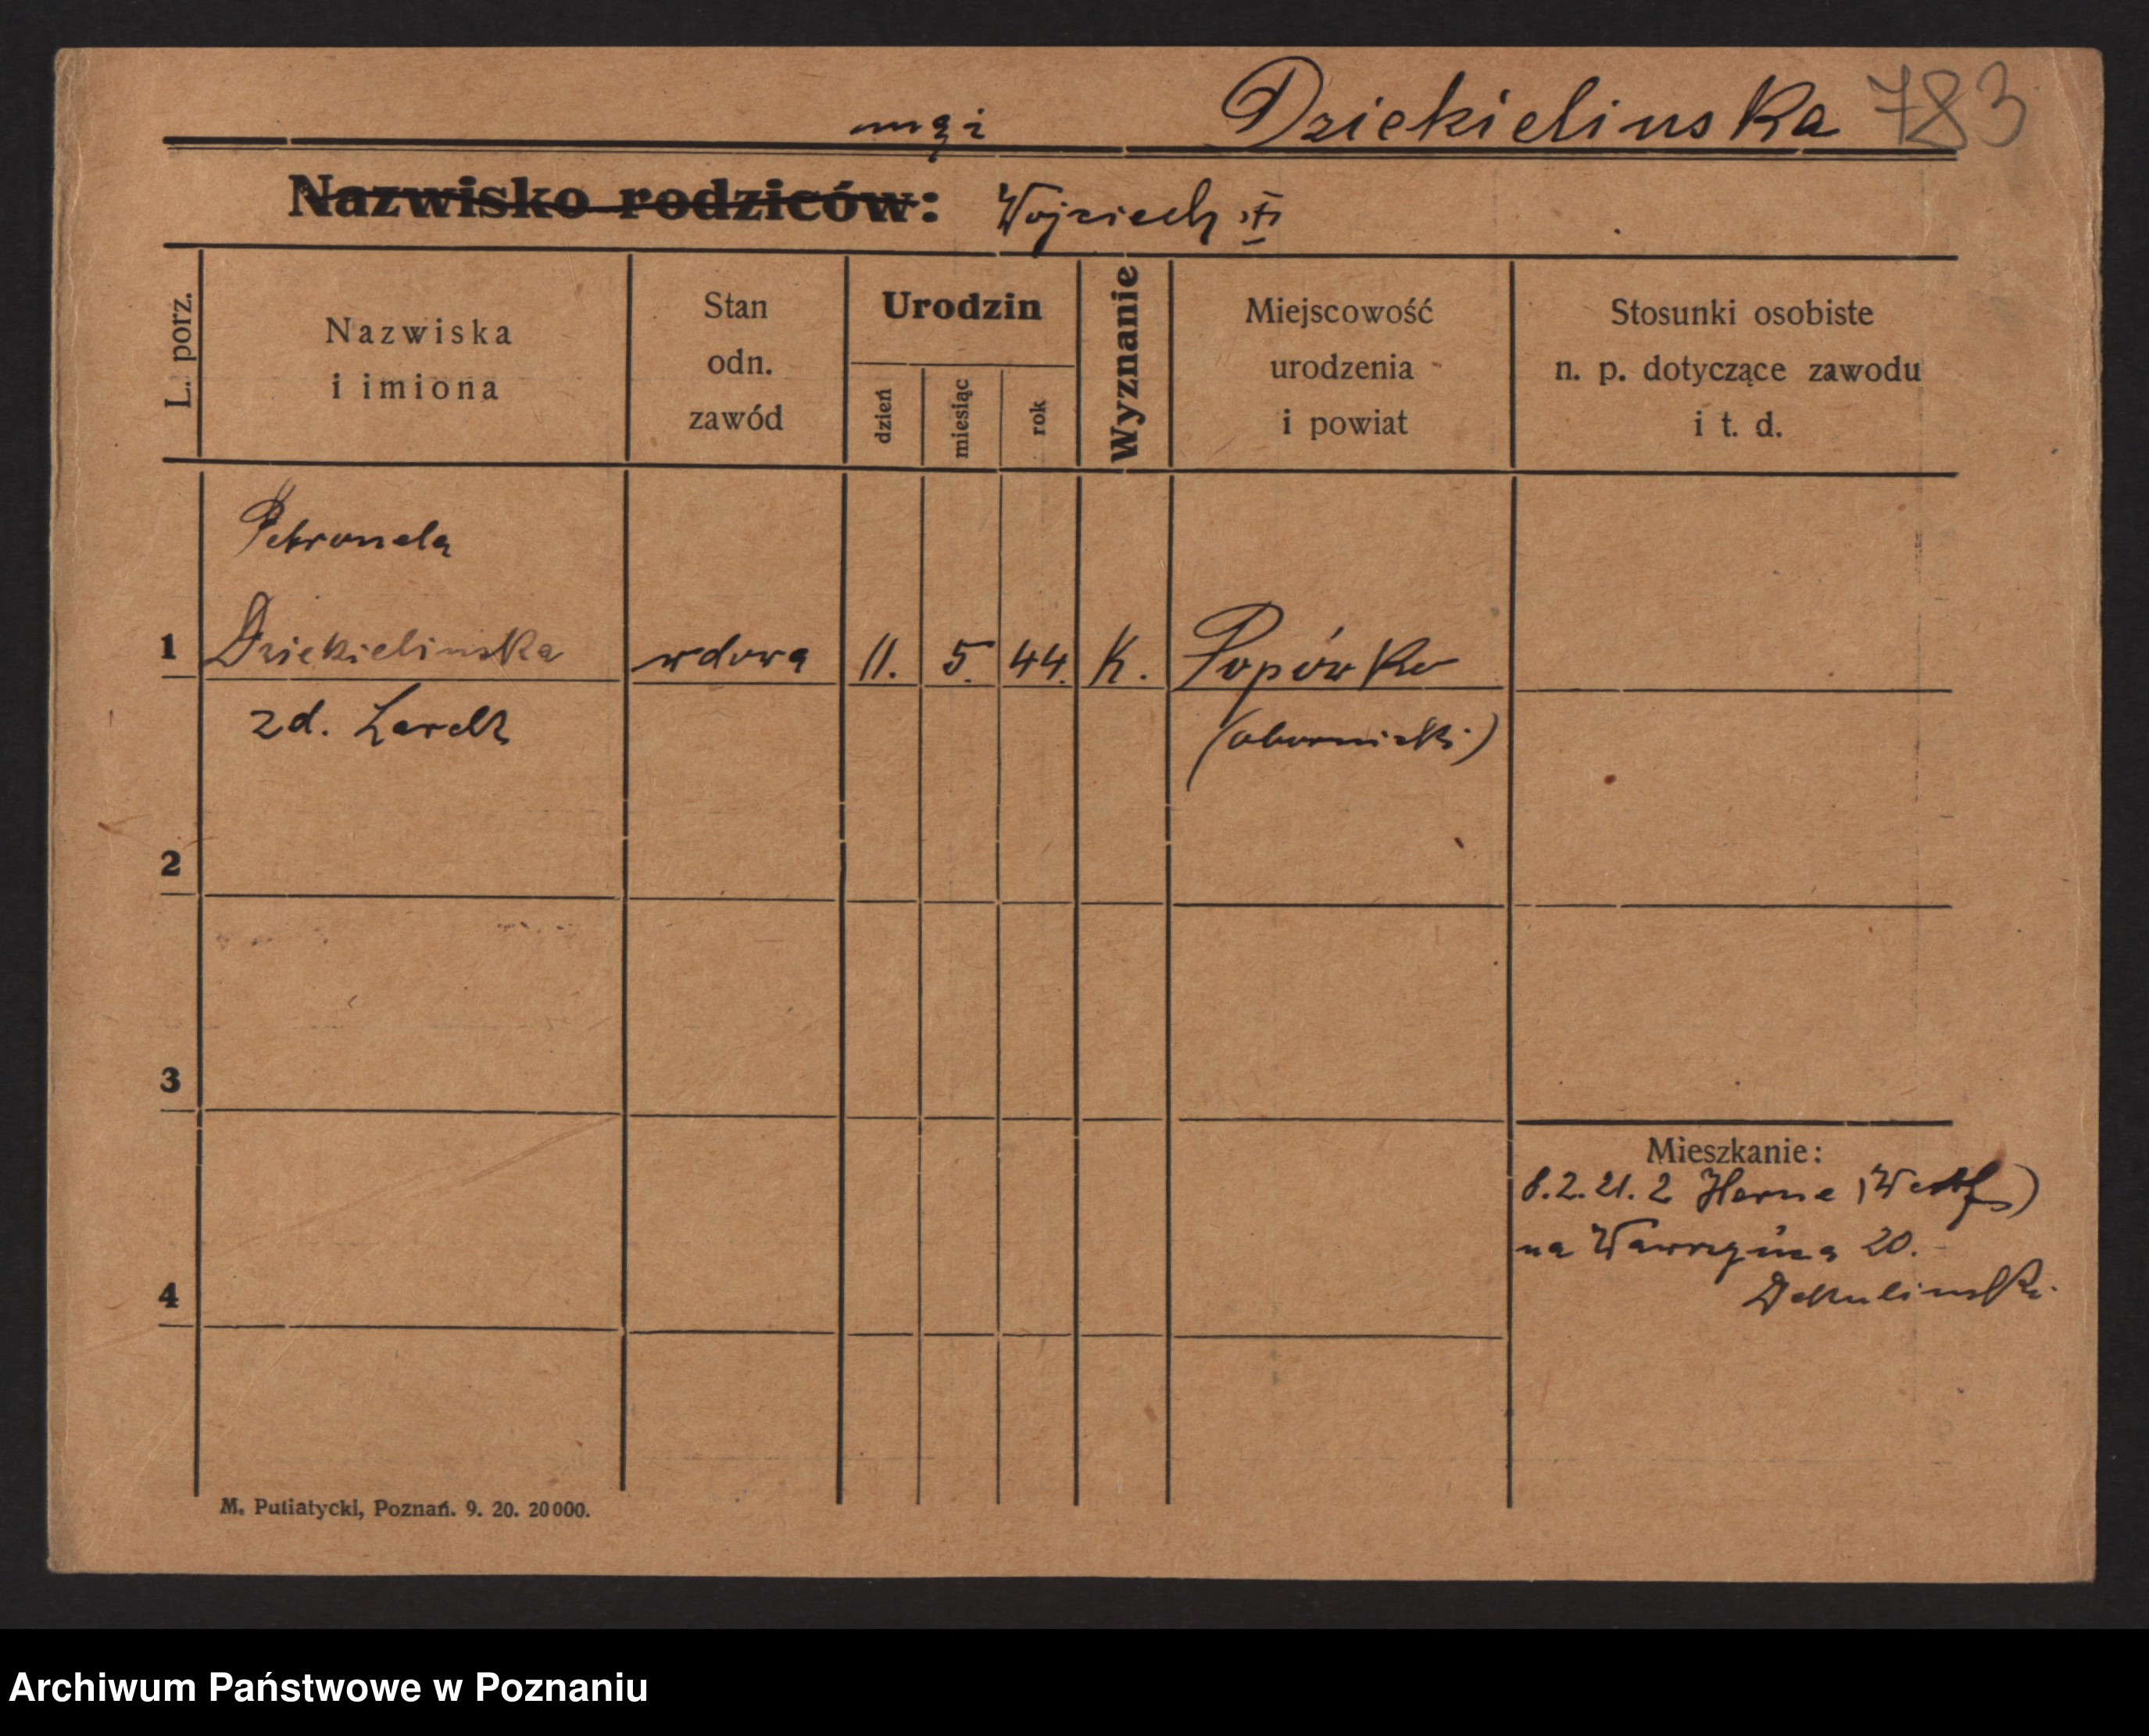 Dziekielinska 783
mąż
Nazwisko rodziców: Wojciech
L. porz.
Nazwiska i imiona
Stan odn. zawód
Urodzin
dzień
miesiąc
rok
Wyznanie
Miejscowość urodzenia i powiat
Stosunki osobiste n. p. dotyczące zawodu i t. d.
Petronela
1 Dziekielinska wdowa 11. 5. 44. K. Popówko
zd. (obornicki)
2
3
Mieszkanie:
8.2.21. z Herne (Westf)
na Wawrzyńca 20.
4
M. Putiatycki, Poznań. 9. 20. 20000.
Archiwum Państwowe w Poznaniu